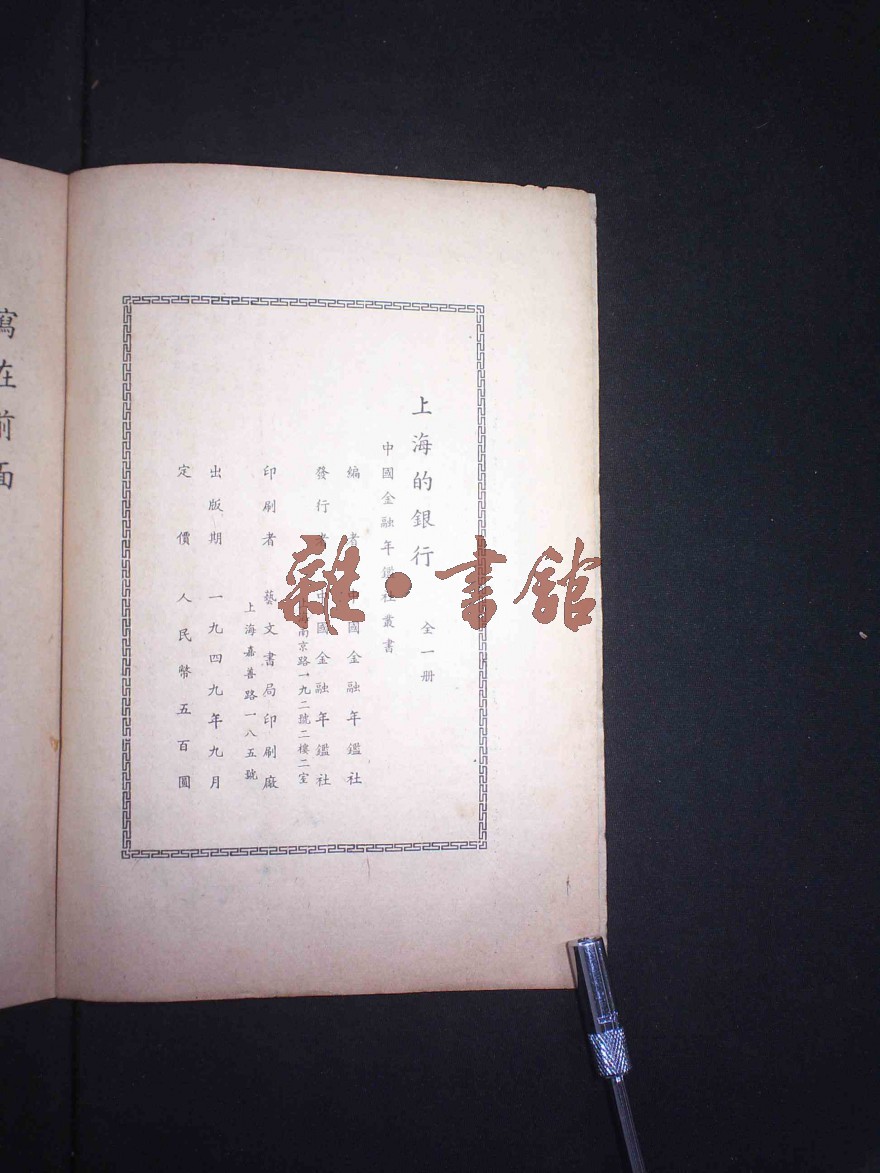 上海的銀行 全一册
中國金融年鑑社叢書
編者 中國金融年鑑社
發行者 中國金融年鑑社
上海南京路一九二號二樓二室
印刷者 藝文書局印刷廠
上海嘉善路一八五號
出版期 一九四九年九月
定價 人民幣五百圓
寫在前面
雜·書館